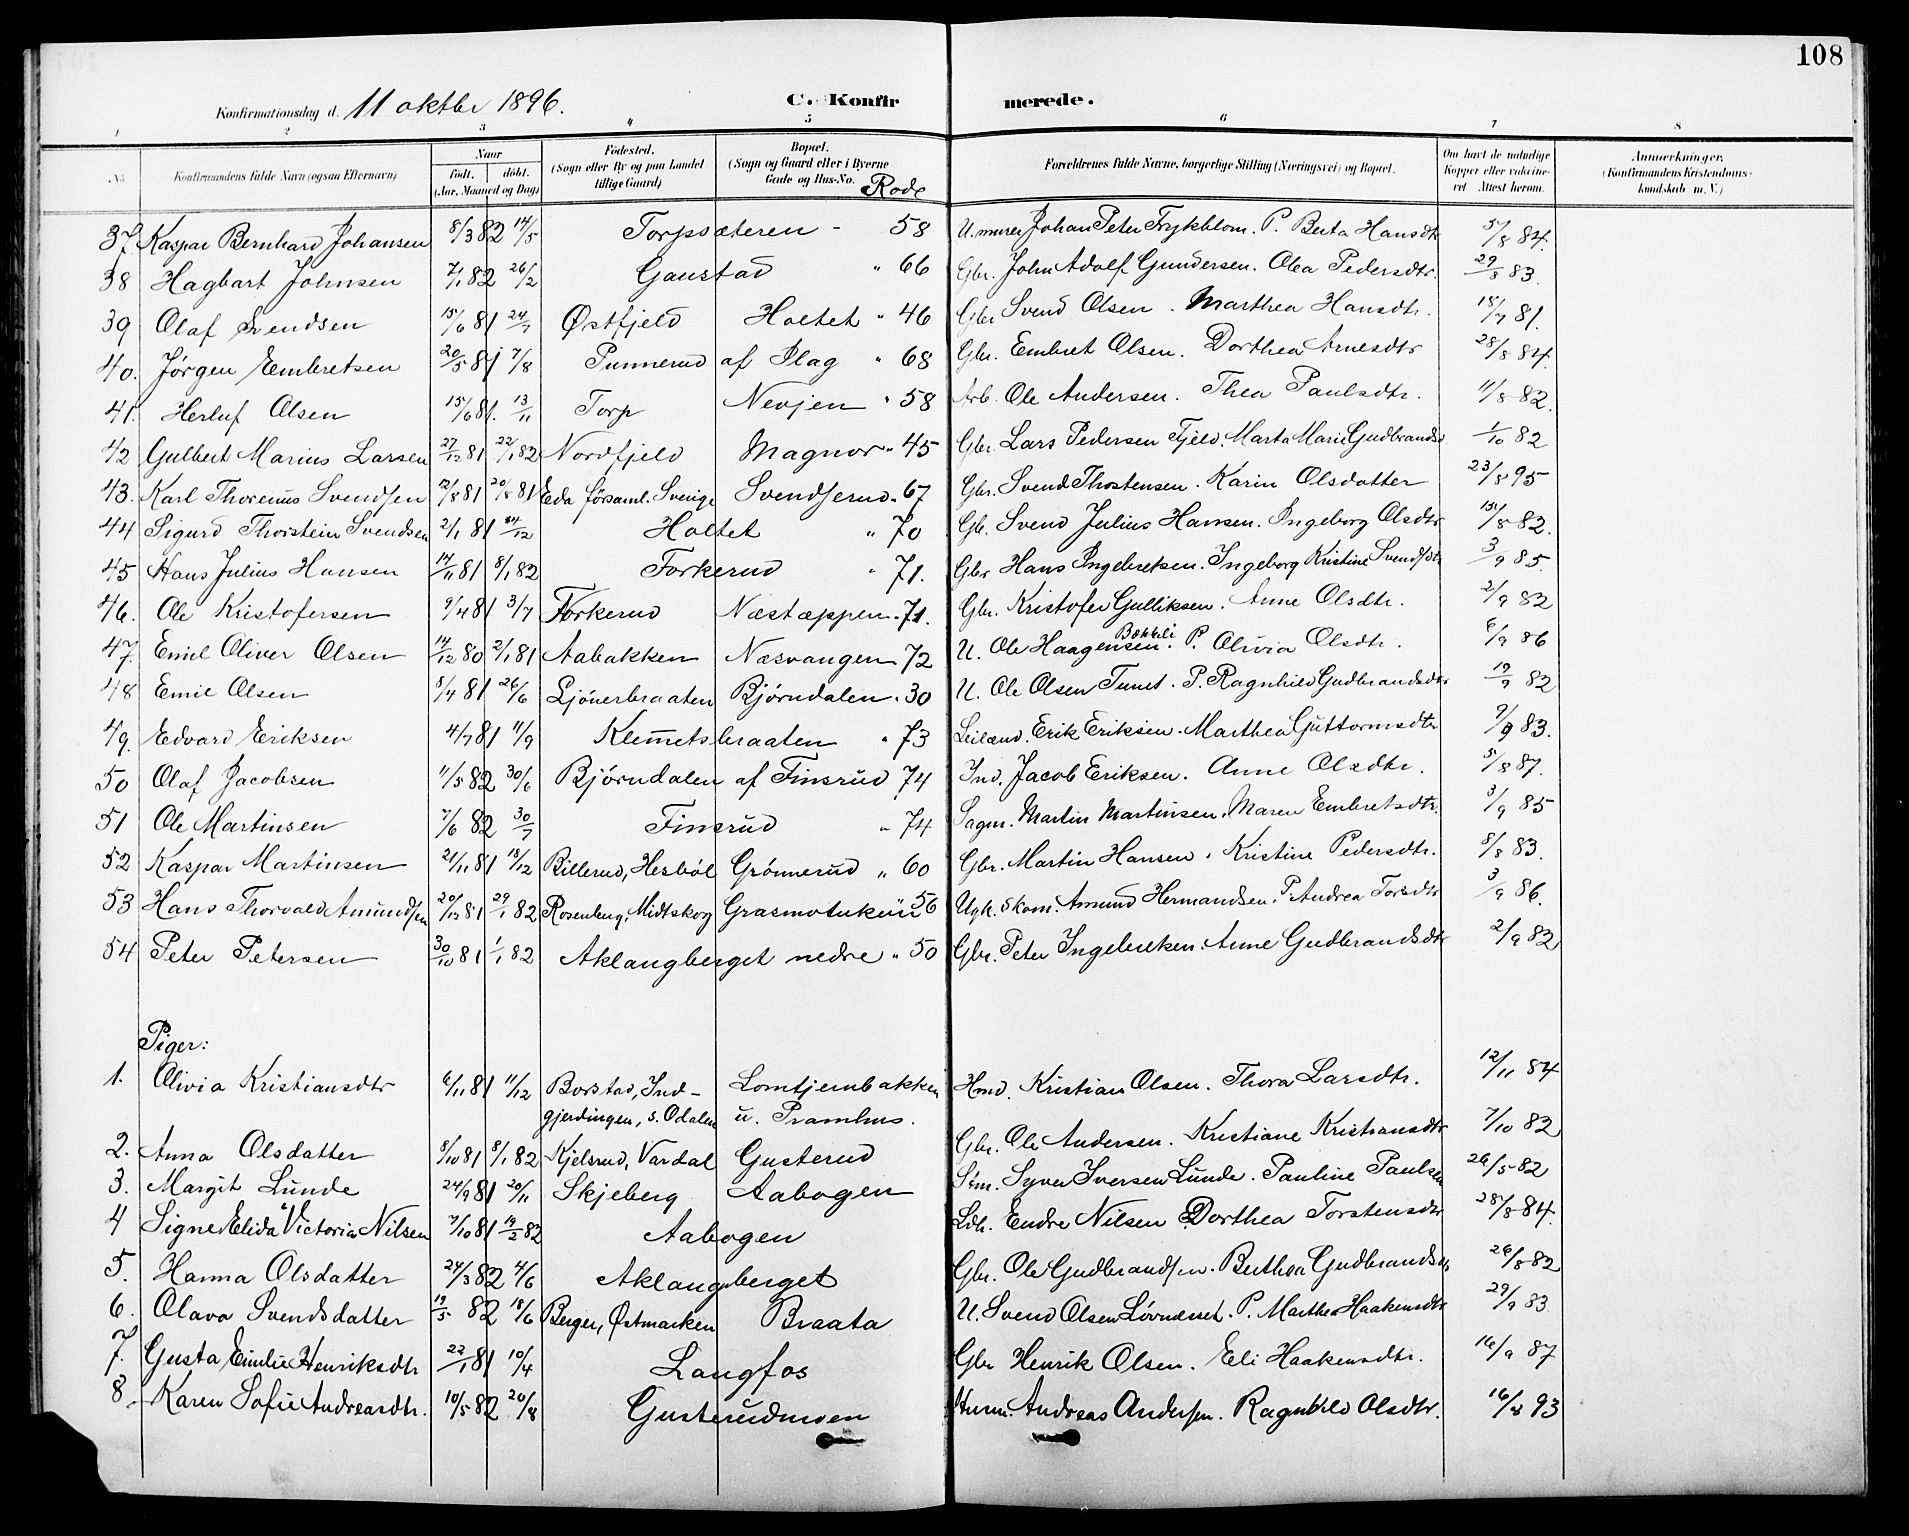 108
Konfirmationsdag d. 11 oktbr 1896. C. Konfirmerede.
1 2 3 4 5 6 7 8
No. Konfirmandens fulde Navn (ogsaa Efternavn) Naar født. døbt. (Aar, Maaned og Dag) Fødested. (Sogn eller By og paa Landet tillige Gaard) Bopæl. (Sogn og Gaard eller i Byerne Gade og Hus-No. Rode Forældrenes fulde Navne, borgerlige Stilling (Næringsvei) og Bopæl. Om havt de naturlige Kopper eller vaccineret Attest herom. Anmærkninger. (Konfirmandens Kristendomskundskab m. V.)
37. Kaspar Bernhard Johansen 8/3 82 14/5 Torpsæteren - 58 U. murer Johan Peter Frykblom. P. Berta Hansdtr 5/8 84.
38 Hagbart Johnsen 7/1 82 26/2 Gaustad " 66 Gbr. John Adolf Gundersen. Olea Pedersdtr. 29/8 83.
39 Olaf Svendsen 15/6 81 24/7 Østfjeld Holtet " 46 Gbr Svend Olsen. Marthea Hansdtr. 18/7 81.
40. Jørgen Embretsen 20/5 81 7/8 Punnerud af Plag " 68 Gbr. Embret Olsen. Dorthea Arnesdtr 28/8 84.
41. Herluf Olsen 15/6 81. 13/11 Torp Nevjen " 58 Arb. Ole Andersen. Thea Paulsdtr. 11/8 82.
42 Gulbert Marius Larsen 27/12 81 22/1 82 Nordfjeld Magnor " 45 Gbr. Lars Pedersen Fjeld. Marta Marie Gudbrandsd 1/10 82
43. Karl Thorenius Svendsen 12/8 81 20/8 81 Eda församl. Sverige Svendserud " 67 Gbr. Svend Thostensen. Karin Olsdatter 23/8 95
44 Sigurd Thorstein Svendsen 2/1 81 24/12 Holtet " 70 Gbr. Svend Julius Hansen. Ingeborg Olsdtr 15/8 82.
45 Hans Julius Hansen 14/11 81 8/1 82 Forkerud " 71. Gbr Hans Ingebretsen. Ingeborg Kristine Svendsdtr 3/9 85.
46. Ole Kristofersen 9/4 81 3/7 Forkerud Næstæppen " 71. Gbr. Kristofer Gulliksen. Anne Olsdtr. 2/9 82
47. Emil Oliver Olsen 14/12 80 2/1 81 Aabakken Næsvangen 72 U. Ole Haagensen Bækkeli. P. Olivia Olsdtr. 6/9 86
48 Emil Olsen 8/4 81 26/6 Ljönerbraaten Bjørndalen " 30 U. Ole Olsen Tunet. P. Ragnhild Gudbrandsdtr 19/9 82
49. Edvard Eriksen 4/7 81 11/9 Klemetsbraaten " 73 Leilænd. Erik Eriksen. Marthea Guttormsdtr 9/9 83.
50 Olaf Jacobsen 11/5 82 30/6 Bjørndalen af Finsrud 74 Ind. Jacob Eriksen. Anne Olsdtr. 5/8 87.
51 Ole Martinsen 7/6 82 30/7 Finsrud " 74 Sagm. Martin Martinsen. Maren Embretsdtr. 3/9 85
52 Kaspar Martinsen 21/11 81 18/12 Billerud, Hesböl Grönnerud " 60 Gbr. Martin Hansen. Kristine Pedersdtr. 8/8 83.
53 Hans Thorvald Amundsen 20/12 81 29/1 82 Rosenberg, Midtskog Grasmotukun 56 Ugk. skom. Amund Hermandsen. P. Andrea Torsdtr 3/9 86.
54 Peter Petersen 30/10 81 1/1 82 Aklangberget nedre " 50 Gbr. Peter Ingebreksen. Anne Gudbrandsdtr 2/9 82
Piger:
1. Olivia Kristiansdtr 6/11 81 11/12 Borstad, Ind- Lomtjernbakken Hmd. Kristian Olsen. Thora Larsdtr. 12/11 84
gjerdingen, s. Odalen u. Pramhus.
2. Anna Olsdatter 8/10 81 8/1 82 Kjelsrud, Vardal Gusterud Gbr. Ole Andersen. Kristiane Kristiansdtr 7/10 82
3. Margit Lunde 24/9 81 20/11 Skjeberg Aabogen Stm. Syver Iversen Lunde. Pauline Paulsen 26/5 82
4 Signe Elida Victoria Nilsen 7/10 81 19/2 82 Aabogen Ldh. Endre Nilsen Dorthea Torstensdtr 28/8 84.
5. Hanna Olsdatter 24/3 82 4/6 Aklangsberget Gbr. Ole Gudbrandsen. Berthea Gudbrandsdtr 26/8 82
6. Olava Svendsdatter 19/5 82 18/6 Berger, Østmarken Braata U. Svend Olsen Løvnæset. P. Marthea Haakensdtr 29/9 83
7. Gusta Emilie Henriksdtr 22/1 81 10/4 Langfos Gbr Henrik Olsen. Eli Haakensdtr. 16/9 87
8 Karen Sofie Andreasdtr. 10/5 82 20/8 Gusterudmoen Husm. Andreas Andersen. Ragnhild Olsdtr. 16/8 93